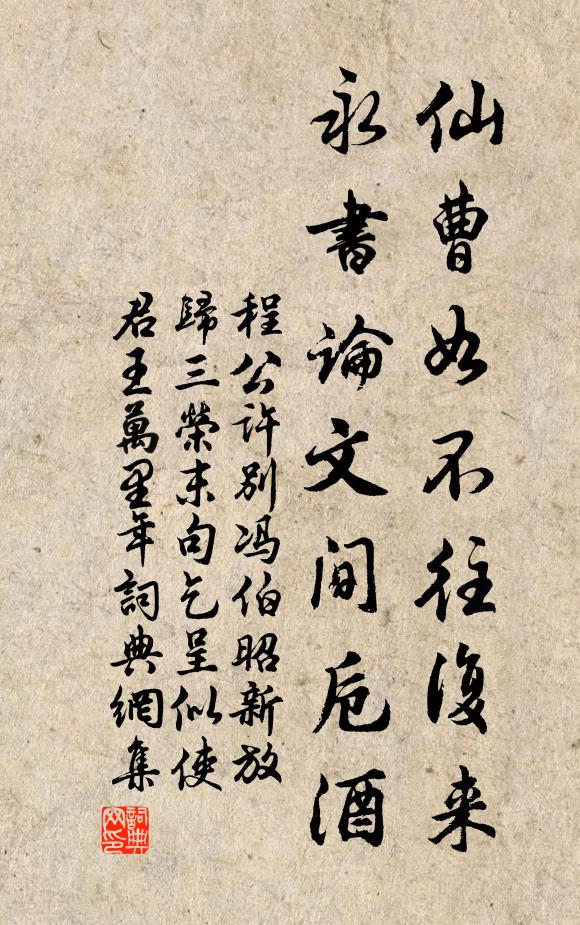 仙曹如不往復来
永書論文間卮酒
程公許别冯伯昭新放
歸三榮末句乞呈似使
君王萬里年詞典網集
詞典网印